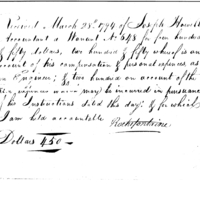 Received March 28th 1794 of Joseph Howell
Accountant a Warrant No 348 for four hundred
& fifty dollars, two hundred & fifty whereof is on
account of his compensation & personal expenses, as
& two hundred on account of the
expenses which may be incurred in pursuance
of his Instructions dated this day; & for which
I am held accountable
Rochefontaine
Dollars 450